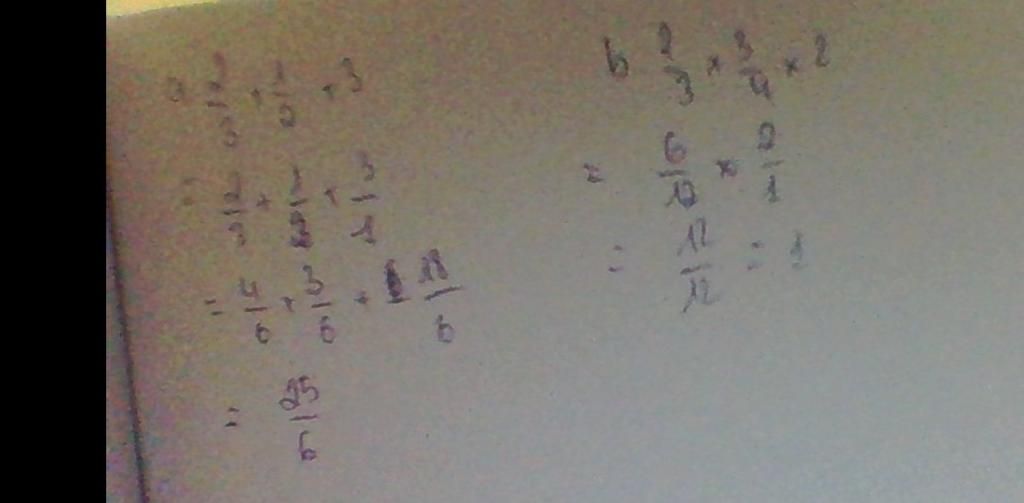 a 2/3 + 1/2 + 3
= 2/3 + 1/2 + 3/1
= 4/6 + 3/6 + 18/6
= 25/6
b 2/3 × 3/4 × 2
= 6/12 × 2/1
= 12/12 = 1